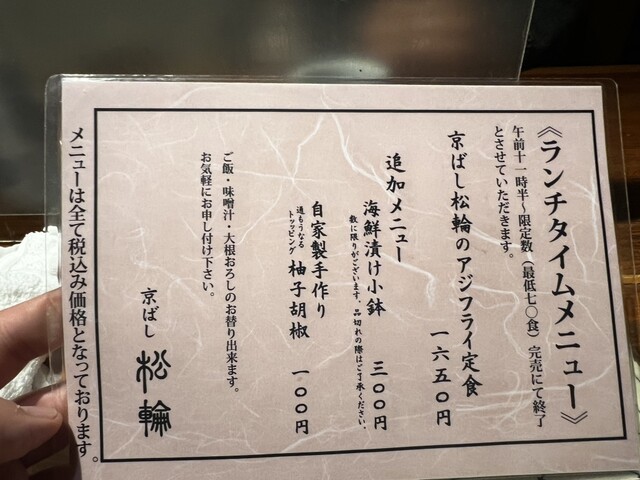 《ランチタイムメニュー》
午前十一時半～限定数（最低七〇食）完売にて終了
とさせていただきます。
京ばし松輪のアジフライ定食 一六五〇円
追加メニュー
海鮮漬け小鉢 三〇〇円
数に限りがございます。品切れの際はご了承ください。
自家製手作り 柚子胡椒 一〇〇円
通もうなる
トッピング
ご飯・味噌汁・大根おろしのお替り出来ます。
お気軽にお申し付け下さい。
京ばし 松輪
メニューは全て税込み価格となっております。